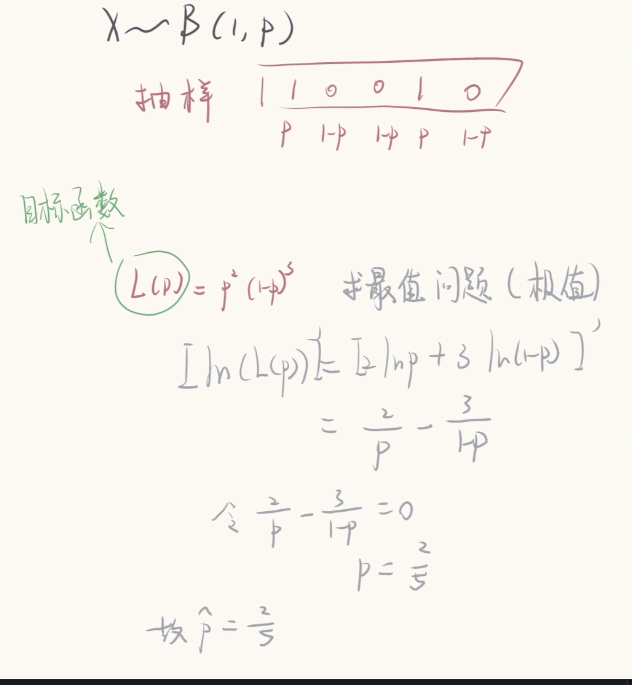 X～B(1,p)
抽样 | 1 0 0 1 0
p 1-p 1-p p 1-p
目标函数
L(p) = p²(1-p)³ 求最值问题(极值)
[ln(L(p))]' = [2lnp + 3ln(1-p)]'
= 2/p - 3/(1-p)
令 2/p - 3/(1-p) = 0
p = 2/5
故 p̂ = 2/5